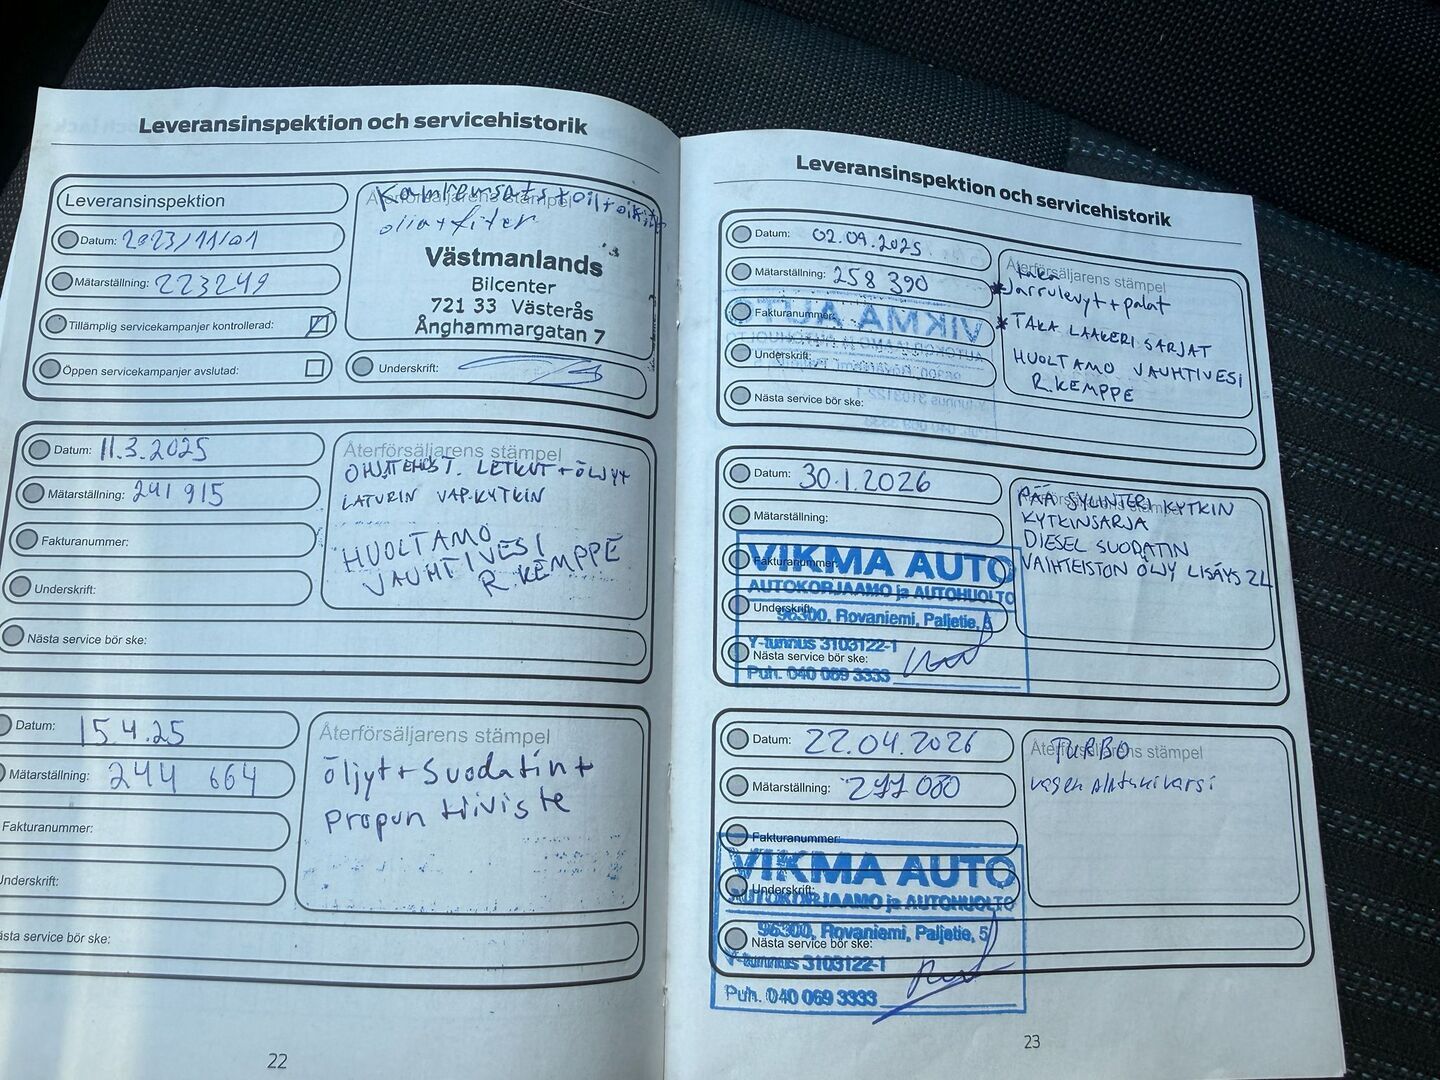 Leveransinspektion och servicehistorik
Leveransinspektion
Datum: 2023/11/01
Mätarställning: 223249
Tillämplig servicekampanjer kontrollerad:
Öppen servicekampanjer avslutad:
Återförsäljarens stämpel
Västmanlands
Bilcenter
721 33 Västerås
Ånghammargatan 7
Underskrift:
Datum: 11.3.2025
Mätarställning: 241 915
Fakturanummer:
Underskrift:
Nästa service bör ske:
Återförsäljarens stämpel
LETKUT + ÖLJYT
LATURIN VAP.KYTKIN
HUOLTAMO
VAUHTIVESI
R KEMPPE
Datum: 15.4.25
Mätarställning: 244 664
Fakturanummer:
Underskrift:
ästa service bör ske:
Återförsäljarens stämpel
öljyt + Suodatin +
Propun tiiviste
22
Leveransinspektion och servicehistorik
Datum: 02.09.2025
Mätarställning: 258 390
Fakturanummer:
Underskrift:
Nästa service bör ske:
Återförsäljarens stämpel
taka
Jarrulevyt + palat
TAKA LAAKERI SARJAT
HUOLTAMO VAUHTIVESI
R.KEMPPE
Datum: 30.1.2026
Mätarställning:
Fakturanummer:
Underskrift:
Nästa service bör ske:
VIKMA AUTO
AUTOKORJAAMO ja AUTOHUOLTO
96300, Rovaniemi, Paljetie, 5
Y-tunnus 3103122-1
Puh. 040 069 3333
Återförsäljarens stämpel
PÄÄ SYLINTERI KYTKIN
KYTKINSARJA
DIESEL SUODATIN
VAIHTEISTON ÖLJY LISÄYS 2L
Datum: 22.04.2026
Mätarställning: 277 080
Fakturanummer:
Underskrift:
Nästa service bör ske:
VIKMA AUTO
AUTOKORJAAMO ja AUTOHUOLTO
96300, Rovaniemi, Paljetie, 5
Y-tunnus 3103122-1
Puh. 040 069 3333
Återförsäljarens stämpel
TURBO
23